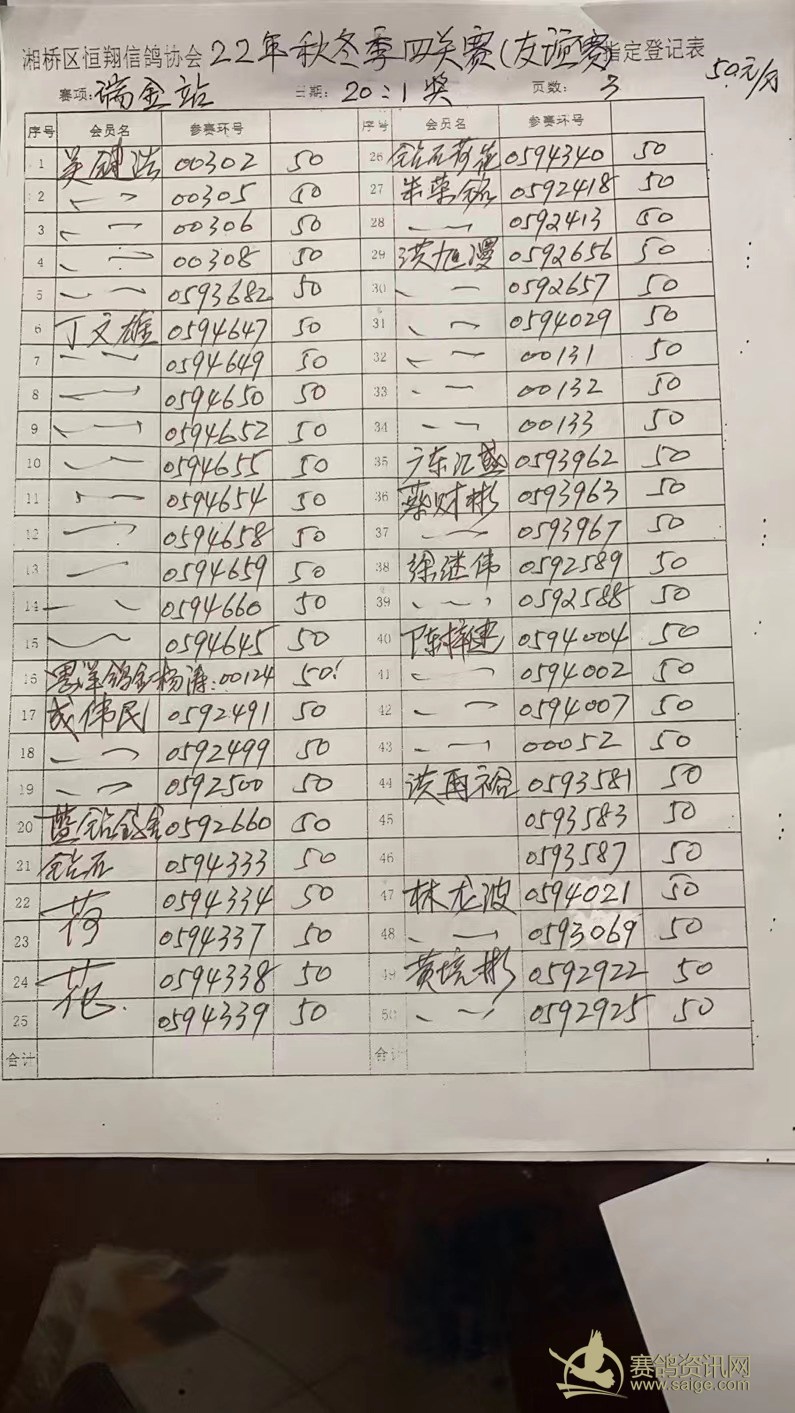 湘桥区恒翔信鸽协会 22年秋冬季四关赛(友谊赛 指定登记表
赛项: 瑞金站 日期: 20:1奖 页数: 3 50元/分
序号 会员名 参赛环号 序号 会员名 参赛环号
1 00302 50 26 钻石荷花 0594340 50
2 00305 50 27 朱荣铭 0592418 50
3 00306 50 28 0592413 50
4 00308 50 29 0592656 50
5 0593682 50 30 0592657 50
6 丁文雄 0594647 50 31 0594029 50
7 0594649 50 32 00131 50
8 0594650 50 33 00132 50
9 0594652 50 34 00133 50
10 0594655 50 35 广东汇 0593962 50
11 0594654 50 36 蔡财彬 0593963 50
12 0594658 50 37 0593967 50
13 0594659 50 38 徐继伟 0592589 50
14 0594660 50 39 0592588 50
15 0594645 50 40 陈梓建 0594004 50
16 杨涛:00124 50! 41 0594002 50
17 成伟民 0592491 50 42 0594007 50
18 0592499 50 43 00052 50
19 0592500 50 44 洪再裕 0593581 50
20 0592660 50 45 0593583 50
21 钻石 0594333 50 46 0593587 50
22 荷 0594334 50 47 林龙波 0594021 50
23 0594337 50 48 0593069 50
24 花. 0594338 50 49 黄培彬 0592922 50
25 0594339 50 50 0592925 50
合计 合计
赛鸽资讯网
www.saige.com